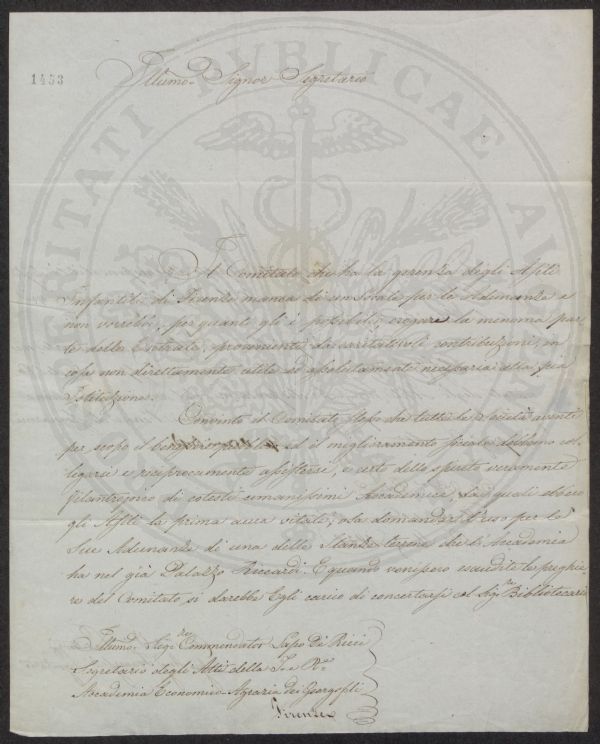 1453
Illumo. Signor Segretario
Il Comitato che ha la gerenza degli Asili
Infantili di Firenze manca di un locale per le Adunanze e
non vorrebbe, per quanto gli è possibile, erogare la menoma par-
te delle Entrate, provenienti da caritatevoli contribuzioni, in
cosa non direttamente utile ed assolutamente necessaria alla pia
Istituzione.
Convinto il Comitato stesso che tutte le Società aventi
per scopo il ben pubblico ed il miglioramento sociale debbono col-
legarsi e reciprocamente assistersi, e certo dello spirito veramente
filantropico di cotesti umanissimi Accademici, dai quali ebbero
gli Asili la prima aura vitale, osa domandar l'uso per le
Sue Adunanze di una delle Stanze terrene che l'Accademia
ha nel già Palazzo Riccardi. E quando venissero esaudite le preghie-
re del Comitato si darebbe Egli carico di concertarsi col Sigre. Bibliotecario
Illumo. Sigre. Commendator Lapo De Ricci
Segretario degli Atti della I. e R.
Accademia Economico-Agraria dei Georgofili
Firenze
VERITATI PUBLICAE